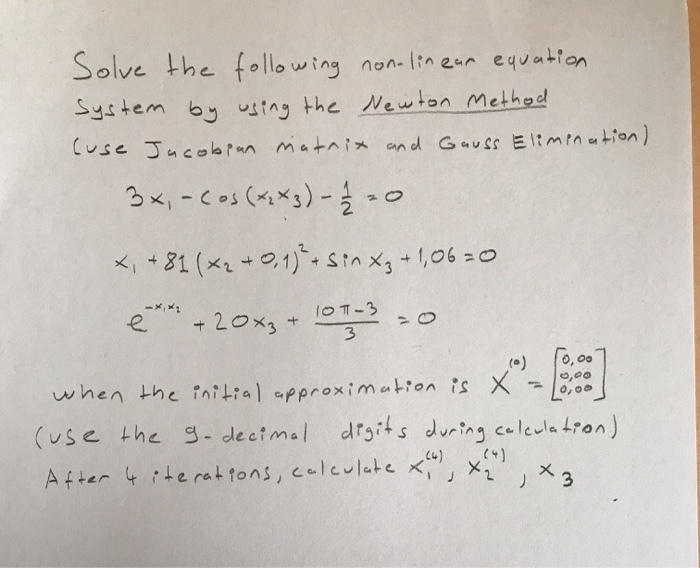 Solve the following non-linear equation
System by using the Newton Method
(use Jacobian matrix and Gauss Elimination)
3x₁ - cos(x₂x₃) - 1/2 = 0
x₁ + 81(x₂ + 0,1)² + sin x₃ + 1,06 = 0
e^(-x₁x₂) + 20x₃ + (10π-3)/3 = 0
when the initial approximation is X⁽⁰⁾ = [0,00 0,00 0,00]
(use the 9-decimal digits during calculation)
After 4 iterations, calculate x₁⁽⁴⁾, x₂⁽⁴⁾, x₃